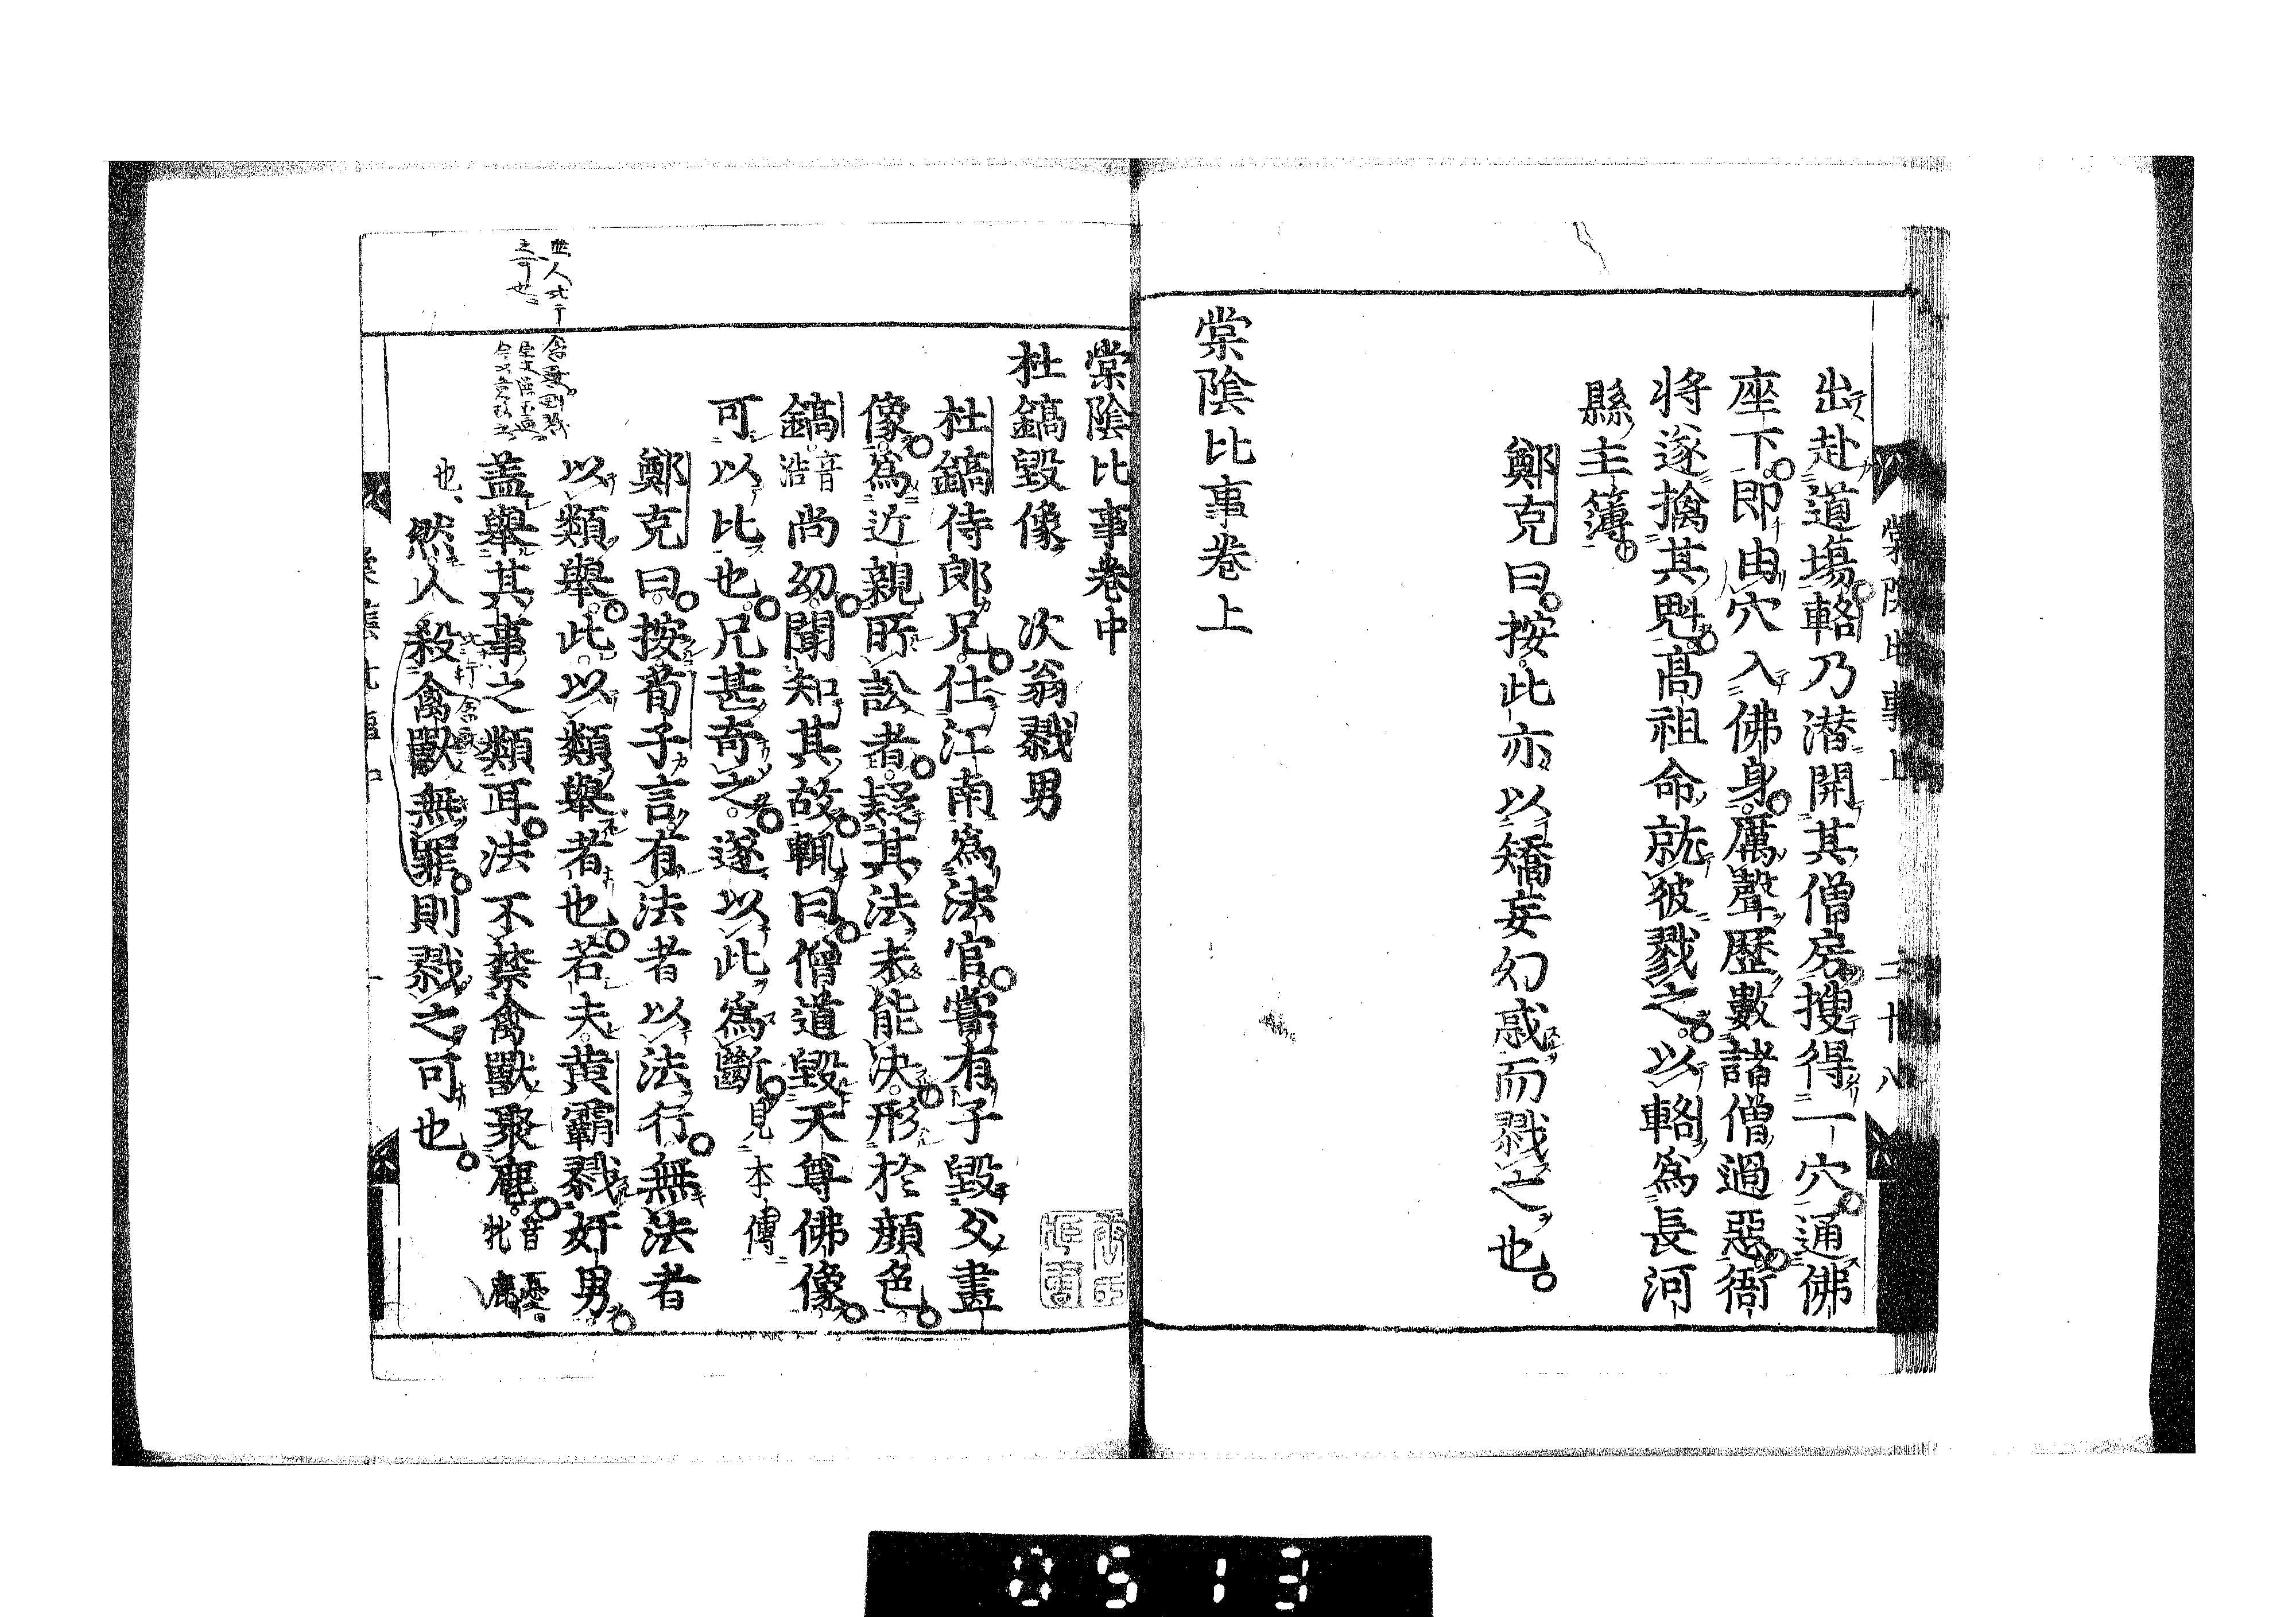 棠陰比事上 二十八
出赴道場輅乃潜開其僧房搜得一穴通佛
座下即由穴入佛身厲聲歷數諸僧過惡衙
將遂擒其魁高祖命就彼戮之以輅爲長河
縣主簿
鄭克曰按此亦以矯妄幻惑而戮之也
棠陰比事卷上
棠陰比事卷中
杜鎬毀像 次翁戮男
杜鎬侍郎兄仕江南爲法官嘗有子毀父畫
像爲近親所訟者疑其法未能决形於顔色
鎬音浩尚幼聞知其故輒曰僧道毀天尊佛像
可以比也兄甚奇之遂以此爲斷見本傳
鄭克曰按荀子言有法者以法行無法者
以類舉此以類舉者也若夫黄霸戮奸男
蓋舉其事之類耳法不禁禽獸聚麀音憂牝鹿
也然人殺禽獸無罪則戮之可也